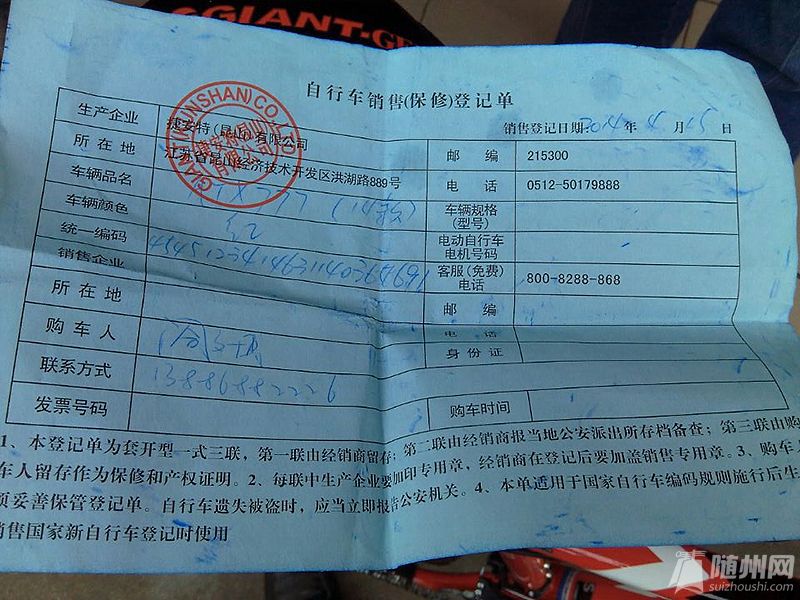 GIANT-GE
自行车销售(保修)登记单
销售登记日期 2014 年 4 月 15 日
生产企业 捷安特(昆山)有限公司 邮 编 215300
所 在 地 江苏省昆山经济技术开发区洪湖路889号 电 话 0512-50179888
车辆品名 777 (14款) 车辆规格(型号)
车辆颜色 红 电动自行车电机号码
统一编码 客服(免费)电话 800-8288-868
销售企业
所 在 地 邮 编
购 车 人 电 话
联系方式 13886882226 身 份 证
发票号码 购车时间
1、本登记单为套开型一式三联,第一联由经销商留存;第二联由经销商报当地公安派出所存档备查;第三联由购
车人留存作为保修和产权证明。2、每联中生产企业要加印专用章,经销商在登记后要加盖销售专用章。3、购车人
须妥善保管登记单。自行车遗失被盗时,应当立即报告公安机关。4、本单适用于国家自行车编码规则施行后生
销售国家新自行车登记时使用
随州网
suizhoushi.com